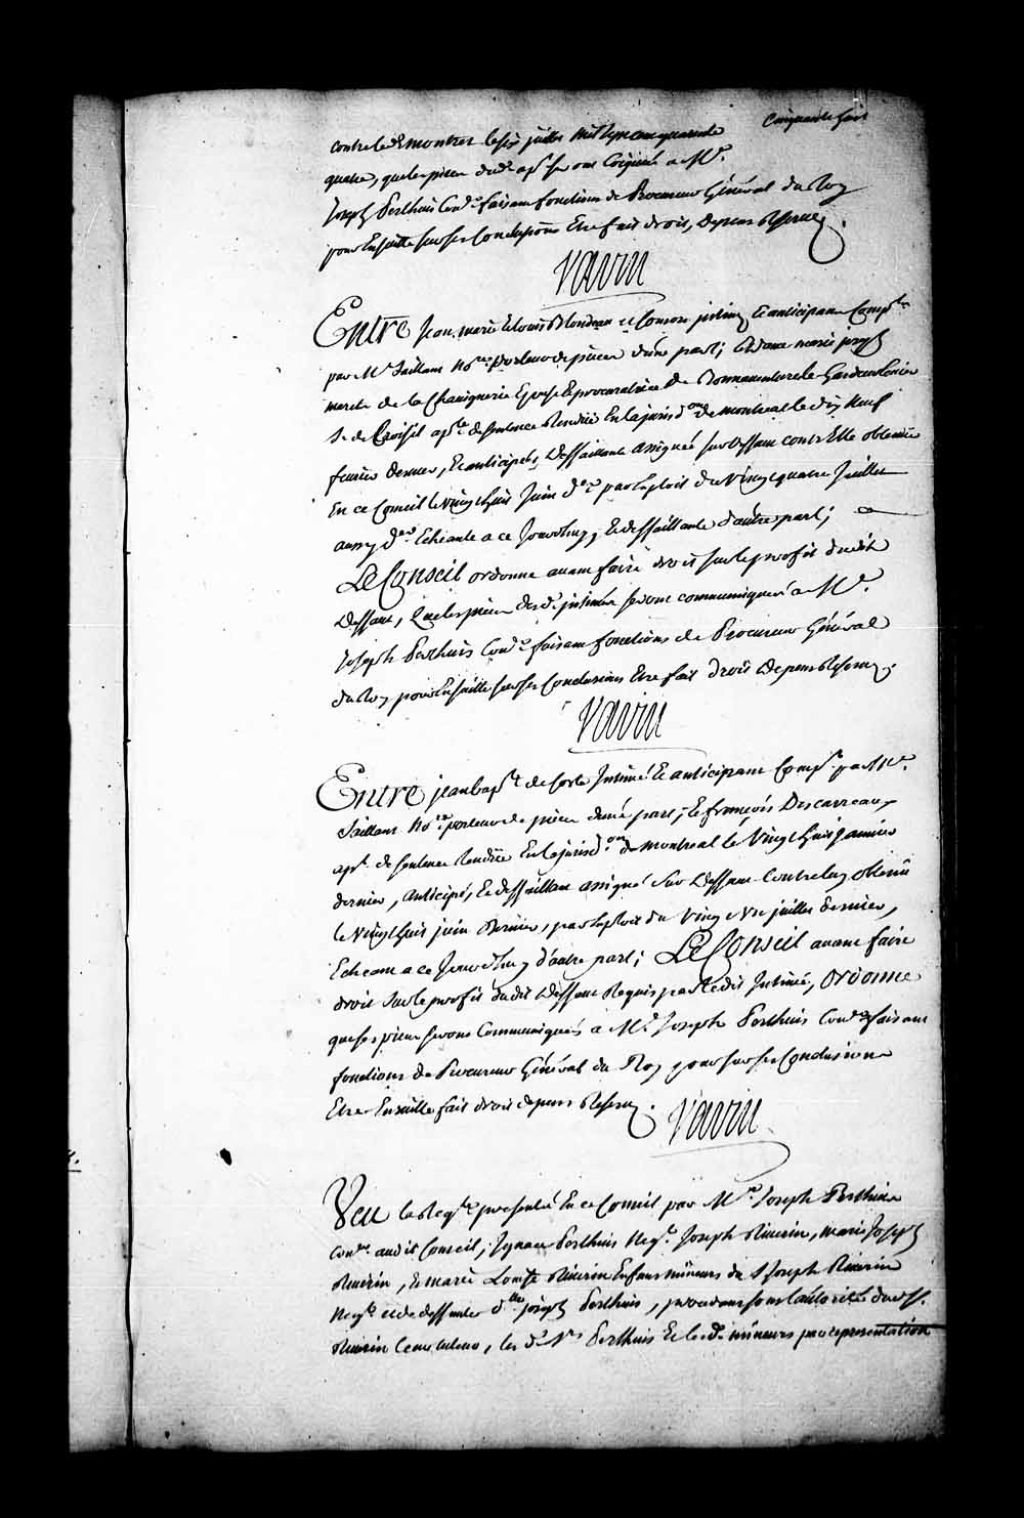 Cinquante huit
contre led. montrer le six juillet mil sept cent quarante
quatre, que les pieces dud. ap.t seront Communiqué a M.e
Joseph Perthuis Con.er faisant fonctions de Procureur Général du Roy
pour Ensuitte sur ses Conclusions Etre fait droit, depens reservez.
Varin
Entre Jean marie Blondeau et Consors intimez Et anticipans Comp.te
par M.e Saillant No.re Porteur de pieces d'une part; Et Dame marie joseph
marete de la Chauignerie Epouse Et procuratrice de Bonnaventure le Gardeur Ecuier
S. de Croisil ap.te de sentence Rendue En la jurisd.on de montreal le dix Neuf
feurier dernier, Et anticipée, Deffaillante assignée sur Deffaut contr'Elle obtenue
En ce Conseil le vingt huit Juin d.er par Exploit du Vingt quatre Juillet
aussy d.er Echeante a ce Jourd'huy, Et deffaillante d'autre part;
Le Conseil ordonne auant faire droit sur le proffit dudit
Deffaut, que les pieces desd. intimés seront communiquées a M.e
Joseph Perthuis Con.er faisant fonctions de Procureur Général
du Roy pour Ensuitte sur ses Conclusions Etre fait droit depens Reservez.
Varin
Entre jean bap.te de Coste Intimé Et anticipant Comp.t par M.e
Saillant No.re porteur de pieces d'une part; Et françois Descarreau
ap.t de sentence Rendue En la jurisd.on de montreal le Vingt huit januier
dernier, anticipé, Et deffaillant assigné sur Deffaut Contre luy obtenu
le Vingt huit juin dernier, par Exploit du Vingt juillet dernier,
Echeant a ce Jourd'huy d'autre part; Le Conseil auant faire
droit sur le proffit dudit Deffaut Requis par Ledit Intimé, Ordonne
que ses pieces seront Communiquées a M.e Joseph Perthuis Con.er faisant
fonctions de Procureur Général du Roy pour sur ses Conclusions
Etre Ensuitte fait droit depens Reservez.
Varin
Veu la Req.te presentée En ce Conseil par M.e Joseph Perthuis
Con.er audit Conseil, Ignace Perthuis Neg.t Joseph Riuerin, marie Joseph
Riuerin, Et marie Louise Riuerin Enfans mineurs du S. Joseph Riuerin
Neg.t et de deffunte d.lle joseph Perthuis, procedans sous l'autorité dud. S.
Riuerin leur tuteur, les d. S.rs Perthuis Et lesd. mineurs par representation